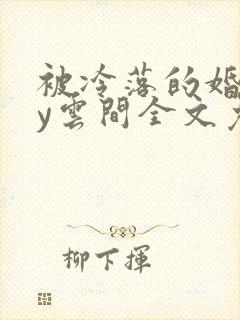 被冷落的婚
y雲間全文
柳下揮